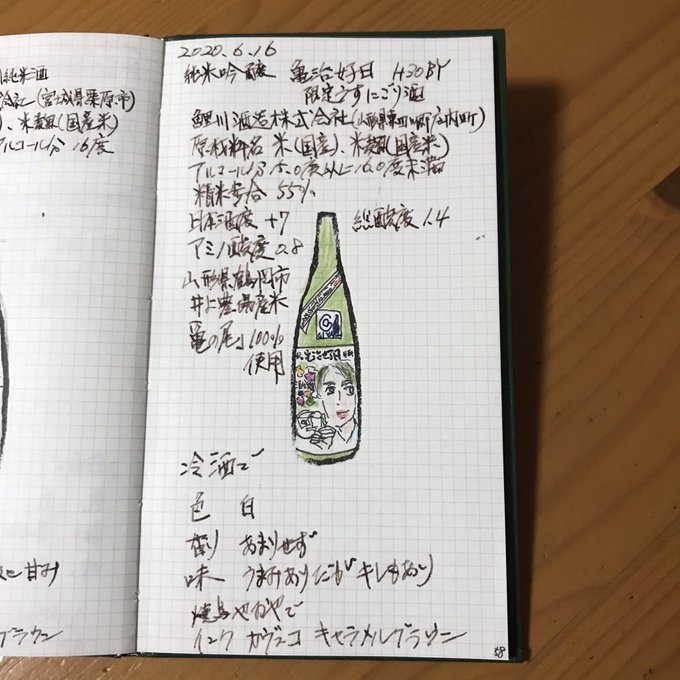 純米酒
会社(宮城県栗原市)
、米麹(国産米)
アルコール分 16度
甘み
ブラウン
2020.6.16
純米吟醸 亀治好日 H30BY
限定うすにごり酒
鯉川酒造株式会社(山形県東田川郡庄内町)
原材料名 米(国産)、米麹(国産米)
アルコール分 15.0度以上16.0度未満
精米歩合 55%
日本酒度 +7 総酸度 1.4
アミノ酸度 0.8
山形県鶴岡市
井上農場産米
亀の尾」100%
使用
亀治好日
冷酒で
色 白
香り あまりせず
味 うまみありだがキレもあり
焼鳥やおやで
インク ガヴェコ キャラメルブラウン
58